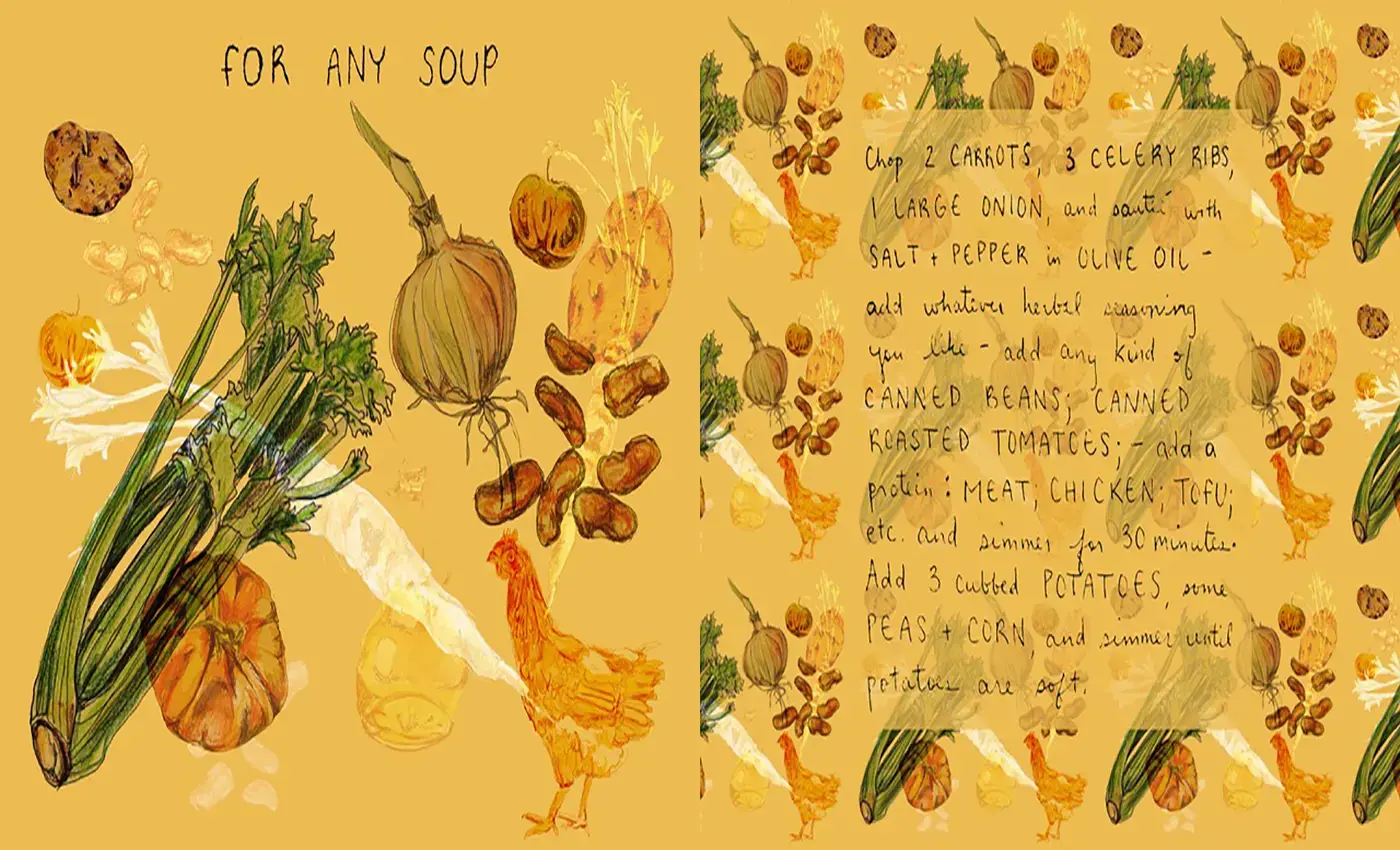 FOR ANY SOUP
Chop 2 CARROTS, 3 CELERY RIBS,
1 LARGE ONION, and sauté with
SALT + PEPPER in OLIVE OIL -
add whatever herbal seasoning
you like - add any kind of
CANNED BEANS; CANNED
ROASTED TOMATOES; - add a
protein: MEAT; CHICKEN; TOFU;
etc. and simmer for 30 minutes.
Add 3 cubbed POTATOES, some
PEAS + CORN, and simmer until
potatoes are soft.